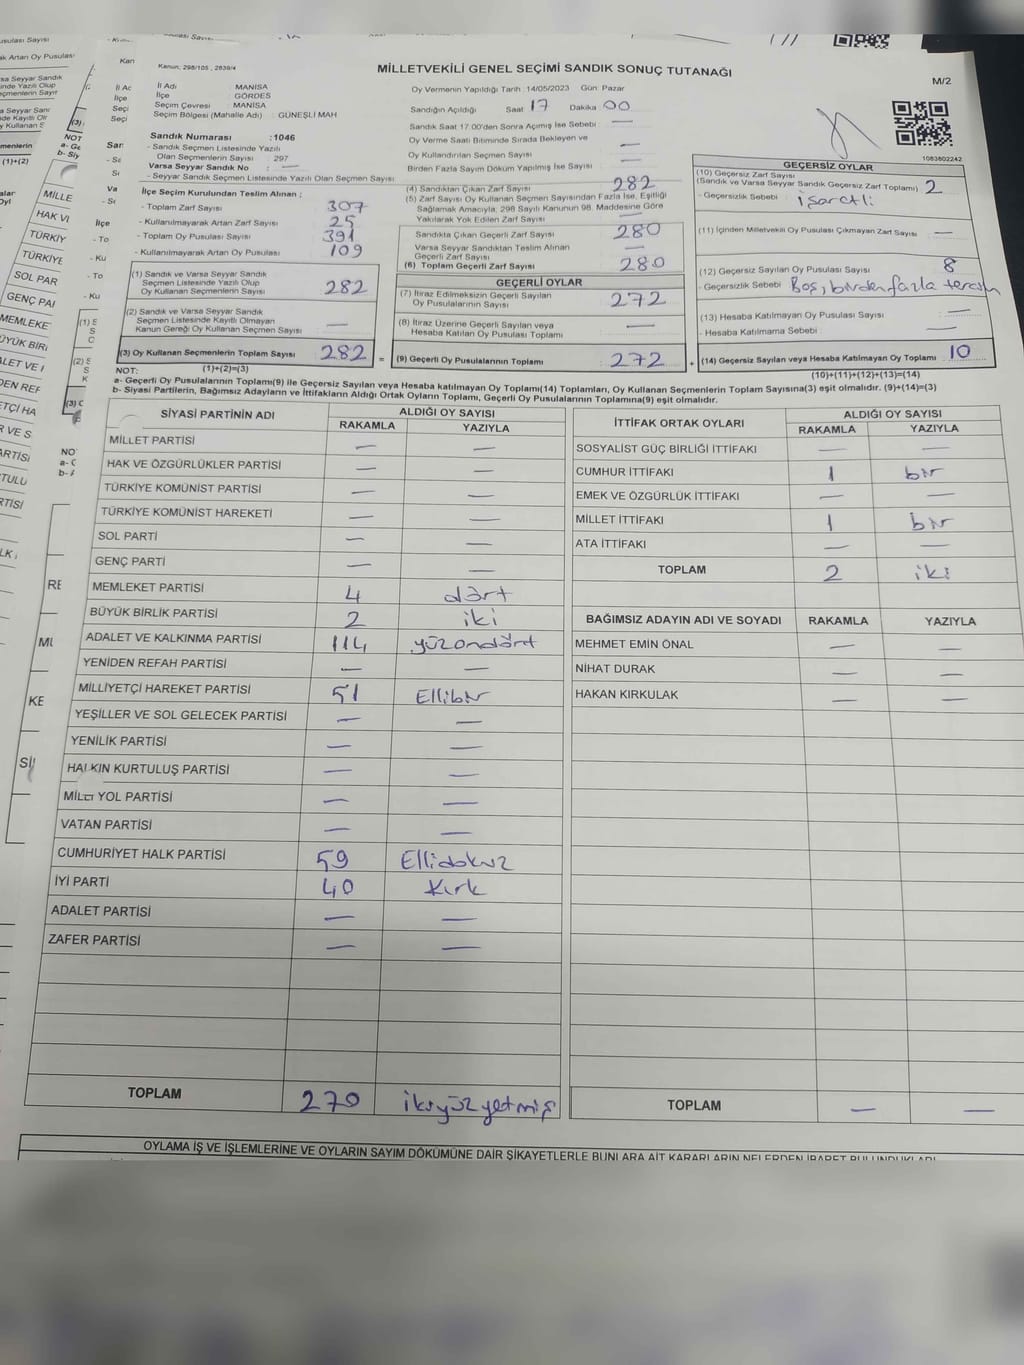 Kanun; 298/105 , 2839/4
MİLLETVEKİLİ GENEL SEÇİMİ SANDIK SONUÇ TUTANAĞI
M/2
İl Adı : MANİSA
İlçe : GÖRDES
Seçim Çevresi : MANİSA
Seçim Bölgesi (Mahalle Adı) : GÜNEŞLİ MAH
Sandık Numarası : 1046
- Sandık Seçmen Listesinde Yazılı
Olan Seçmenlerin Sayısı : 297
Varsa Seyyar Sandık No : —
- Seyyar Sandık Seçmen Listesinde Yazılı Olan Seçmen Sayısı
İlçe Seçim Kurulundan Teslim Alınan ;
- Toplam Zarf Sayısı : 307
- Kullanılmayarak Artan Zarf Sayısı : 25
- Toplam Oy Pusulası Sayısı : 391
- Kullanılmayarak Artan Oy Pusulası : 109
(1) Sandık ve Varsa Seyyar Sandık
Seçmen Listesinde Yazılı Olup
Oy Kullanan Seçmenlerin Sayısı : 282
(2) Sandık ve Varsa Seyyar Sandık
Seçmen Listesinde Kayıtlı Olmayan
Kanun Gereği Oy Kullanan Seçmen Sayısı : —
(3) Oy Kullanan Seçmenlerin Toplam Sayısı : 282
(1)+(2)=(3)
Oy Vermenin Yapıldığı Tarih :14/05/2023 Gün: Pazar
Sandığın Açıldığı Saat 17 Dakika 00
Sandık Saat 17.00'den Sonra Açılmış İse Sebebi : —
Oy Verme Saati Bitiminde Sırada Bekleyen ve
Oy Kullandırılan Seçmen Sayısı : —
Birden Fazla Sayım Döküm Yapılmış İse Sayısı : —
(4) Sandıktan Çıkan Zarf Sayısı : 282
(5) Zarf Sayısı Oy Kullanan Seçmen Sayısından Fazla İse, Eşitliği
Sağlamak Amacıyla, 298 Sayılı Kanunun 98. Maddesine Göre
Yakılarak Yok Edilen Zarf Sayısı : —
Sandıkta Çıkan Geçerli Zarf Sayısı : 280
Varsa Seyyar Sandıktan Teslim Alınan
Geçerli Zarf Sayısı : —
(6) Toplam Geçerli Zarf Sayısı : 280
GEÇERLİ OYLAR
(7) İtiraz Edilmeksizin Geçerli Sayılan
Oy Pusulalarının Sayısı : 272
(8) İtiraz Üzerine Geçerli Sayılan veya
Hesaba Katılan Oy Pusulası Toplamı : —
(9) Geçerli Oy Pusulalarının Toplamı : 272
1083602242
GEÇERSİZ OYLAR
(10) Geçersiz Zarf Sayısı
(Sandık ve Varsa Seyyar Sandık Geçersiz Zarf Toplamı) : 2
- Geçersizlik Sebebi : işaretli
(11) İçinden Milletvekili Oy Pusulası Çıkmayan Zarf Sayısı : —
(12) Geçersiz Sayılan Oy Pusulası Sayısı : 8
- Geçersizlik Sebebi : Boş, birden fazla tercih
(13) Hesaba Katılmayan Oy Pusulası Sayısı : —
- Hesaba Katılmama Sebebi : —
(14) Geçersiz Sayılan veya Hesaba Katılmayan Oy Toplamı : 10
(10)+(11)+(12)+(13)=(14)
NOT:
a- Geçerli Oy Pusulalarının Toplamı(9) ile Geçersiz Sayılan veya Hesaba katılmayan Oy Toplamı(14) Toplamları, Oy Kullanan Seçmenlerin Toplam Sayısına(3) eşit olmalıdır. (9)+(14)=(3)
b- Siyasi Partilerin, Bağımsız Adayların ve İttifakların Aldığı Ortak Oyların Toplamı, Geçerli Oy Pusulalarının Toplamına(9) eşit olmalıdır.
SİYASİ PARTİNİN ADI ALDIĞI OY SAYISI
RAKAMLA YAZIYLA
MİLLET PARTİSİ — —
HAK VE ÖZGÜRLÜKLER PARTİSİ — —
TÜRKİYE KOMÜNİST PARTİSİ — —
TÜRKİYE KOMÜNİST HAREKETİ — —
SOL PARTİ — —
GENÇ PARTİ — —
MEMLEKET PARTİSİ 4 dört
BÜYÜK BİRLİK PARTİSİ 2 iki
ADALET VE KALKINMA PARTİSİ 114 yüzondört
YENİDEN REFAH PARTİSİ — —
MİLLİYETÇİ HAREKET PARTİSİ 51 Ellibir
YEŞİLLER VE SOL GELECEK PARTİSİ — —
YENİLİK PARTİSİ — —
HALKIN KURTULUŞ PARTİSİ — —
MİLLİ YOL PARTİSİ — —
VATAN PARTİSİ — —
CUMHURİYET HALK PARTİSİ 59 Ellidokuz
İYİ PARTİ 40 Kırk
ADALET PARTİSİ — —
ZAFER PARTİSİ — —
TOPLAM 270 ikiyüzyetmiş
İTTİFAK ORTAK OYLARI ALDIĞI OY SAYISI
RAKAMLA YAZIYLA
SOSYALİST GÜÇ BİRLİĞİ İTTİFAKI — —
CUMHUR İTTİFAKI 1 bir
EMEK VE ÖZGÜRLÜK İTTİFAKI — —
MİLLET İTTİFAKI 1 bir
ATA İTTİFAKI — —
TOPLAM 2 iki
BAĞIMSIZ ADAYIN ADI VE SOYADI RAKAMLA YAZIYLA
MEHMET EMİN ÖNAL — —
NİHAT DURAK — —
HAKAN KIRKULAK — —
TOPLAM — —
OYLAMA İŞ VE İŞLEMLERİNE VE OYLARIN SAYIM DÖKÜMÜNE DAİR ŞİKAYETLERLE BUNLARA AİT KARARLARIN NELERDEN İBARET BULUNDUKLARI